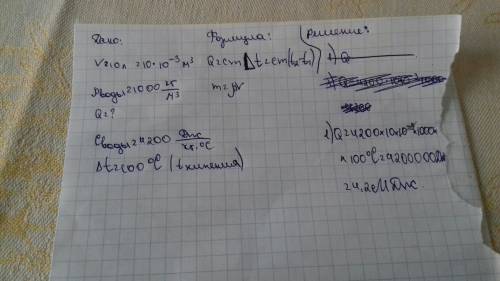 Дано:
V=10л = 10·10⁻³ м³
ρводы=1000 кг/м³
Q=?
Cводы=4200 Дж/кг·°C
Δt=100°C (t кипения)
Формула:
Q=cmΔt=cm(t₂-t₁)
m=ρV
Решение:
1) Q
1) Q=4200×10×10⁻³×1000×
× 100°C=4200000Дж
=4,2МДж.